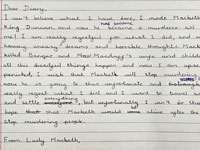 Dear Diary,
I can't believe what I have done, I made Macbeth
King Duncan and now he became a murderer all
me! I am really regretful for what I did, and
having uneasy dreams and horrible thoughts. Macbeth
killed Banquo and Macduff's wife and child
all this dreadful things happen and now I am
I wish that Macbeth will stop murdering
now he is going to that unfortunate and
really regret what I did and I want to
and settle everything, but unfortunatly I can't do that
hope that that Macbeth would alive after the
stop murdering people.
From Lady Macbeth,